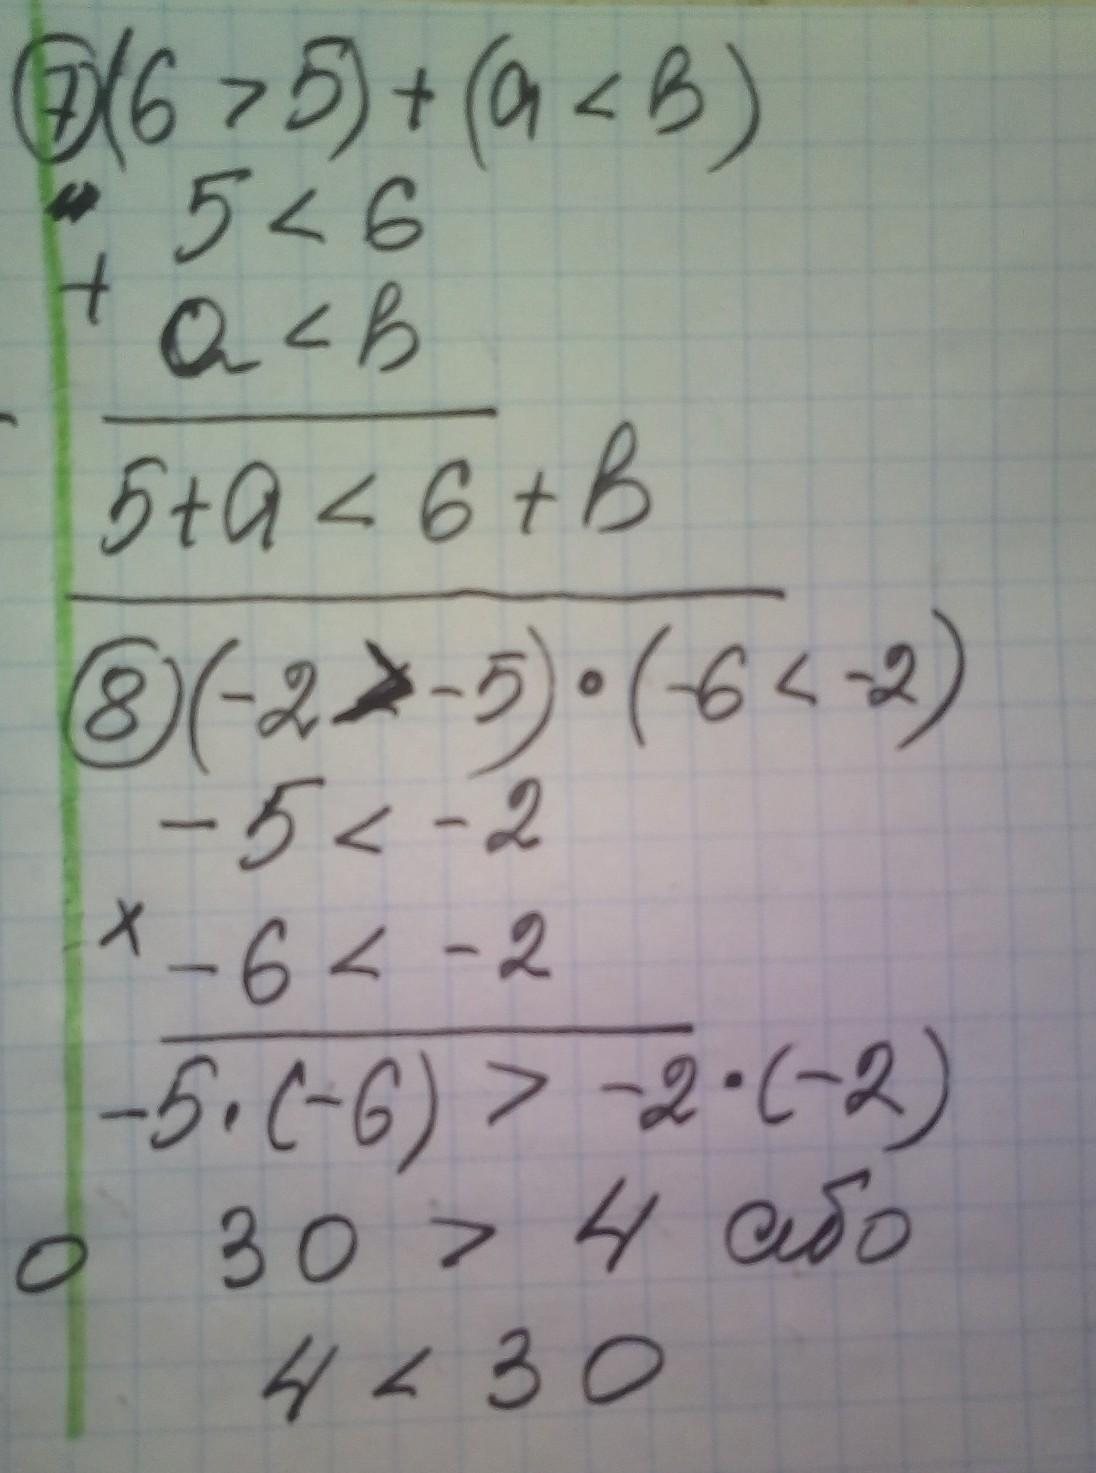 7) (6 > 5) + (a < b)
5 < 6
+
a < b
5 + a < 6 + b
8) (-2 > -5) • (-6 < -2)
-5 < -2
× -6 < -2
-5 · (-6) > -2 · (-2)
30 > 4 або
4 < 30